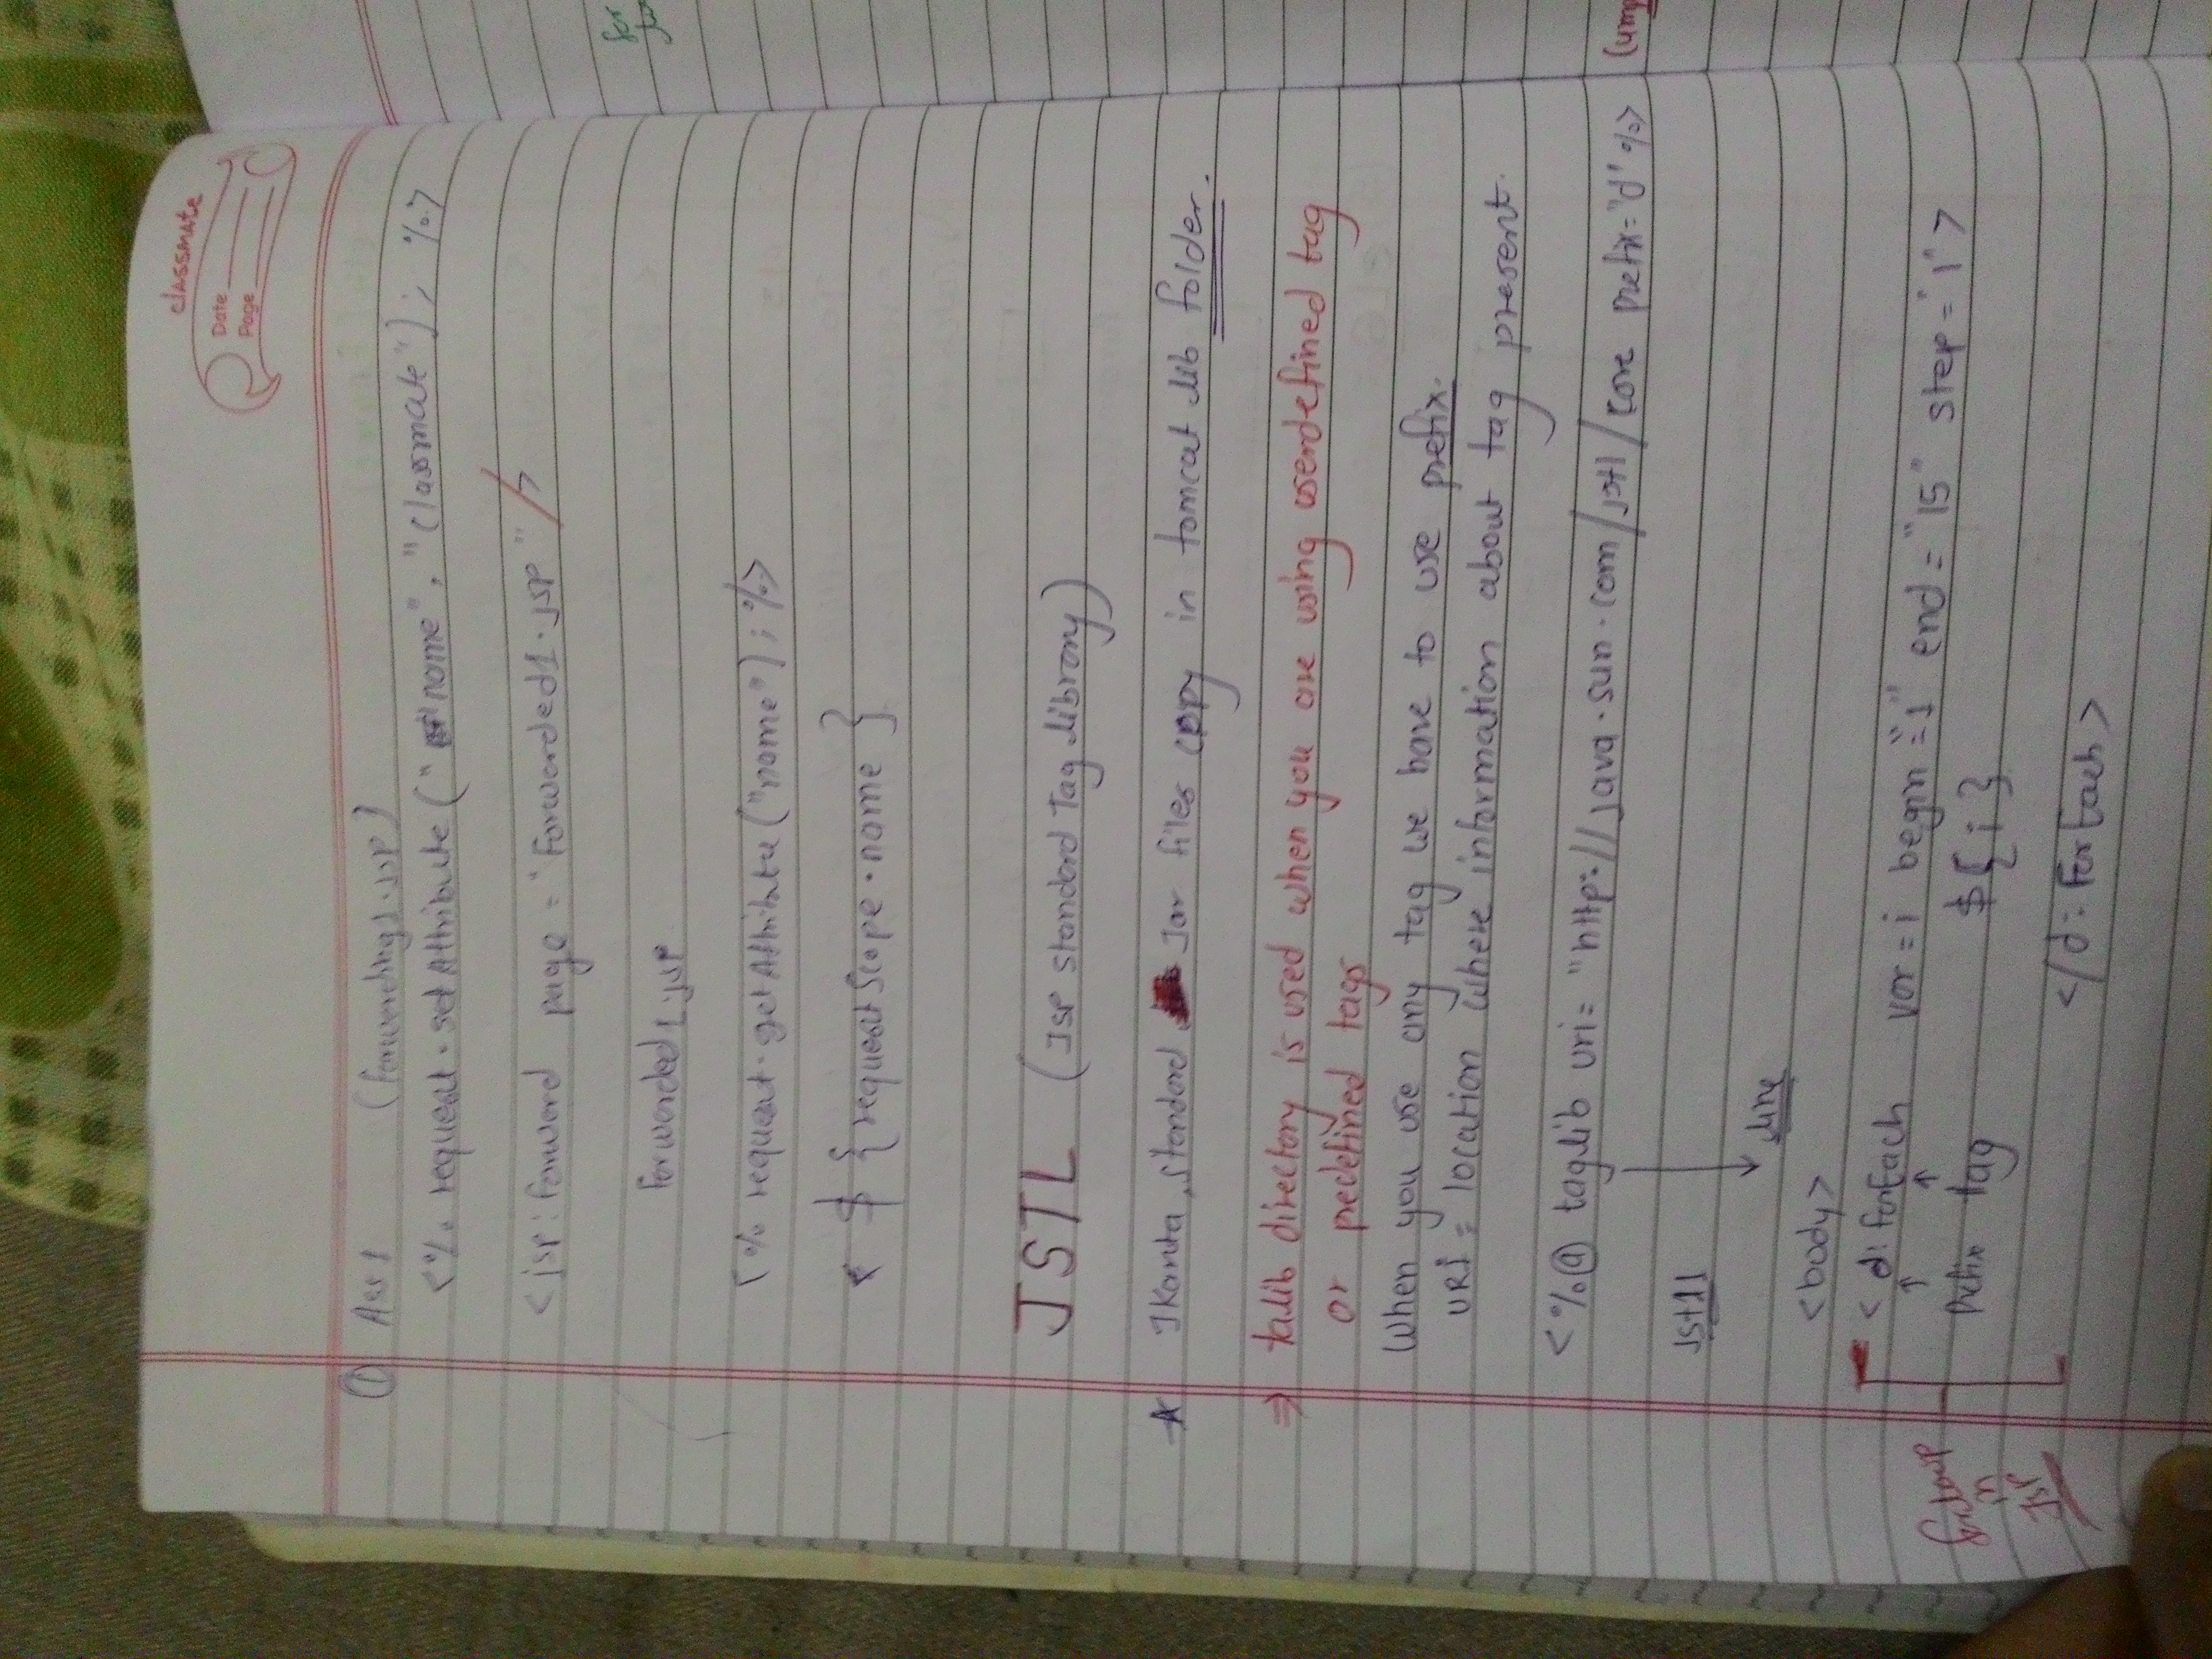 classmate
Date
Page
① Ass 1 (forwarding1.jsp)
<% request.setAttribute("name", "classmate"); %>
<jsp:forward page = "Forwarded1.jsp" />
Forwarded1.jsp
<% request.getAttribute("name"); %>
$ {requestScope.name}
JSTL (Jsp standard Tag library)
standard Jar files copy in tomcat lib folder.
⇒ talib directory is used when you are using userdefined tag
or predefined tags
When you use any tag we have to use prefix.
URI = location where information about tag present.
<%@ taglib uri= "http://java.sun.com/jstl/core prefix="d" %>
Jstl1
line
<body>
< d: forEach var = i begin = "1" end = "15" step = "1" >
↑ ↑
Prefix tag ${i}
</d: ForEach>
forloop
in
Jsp